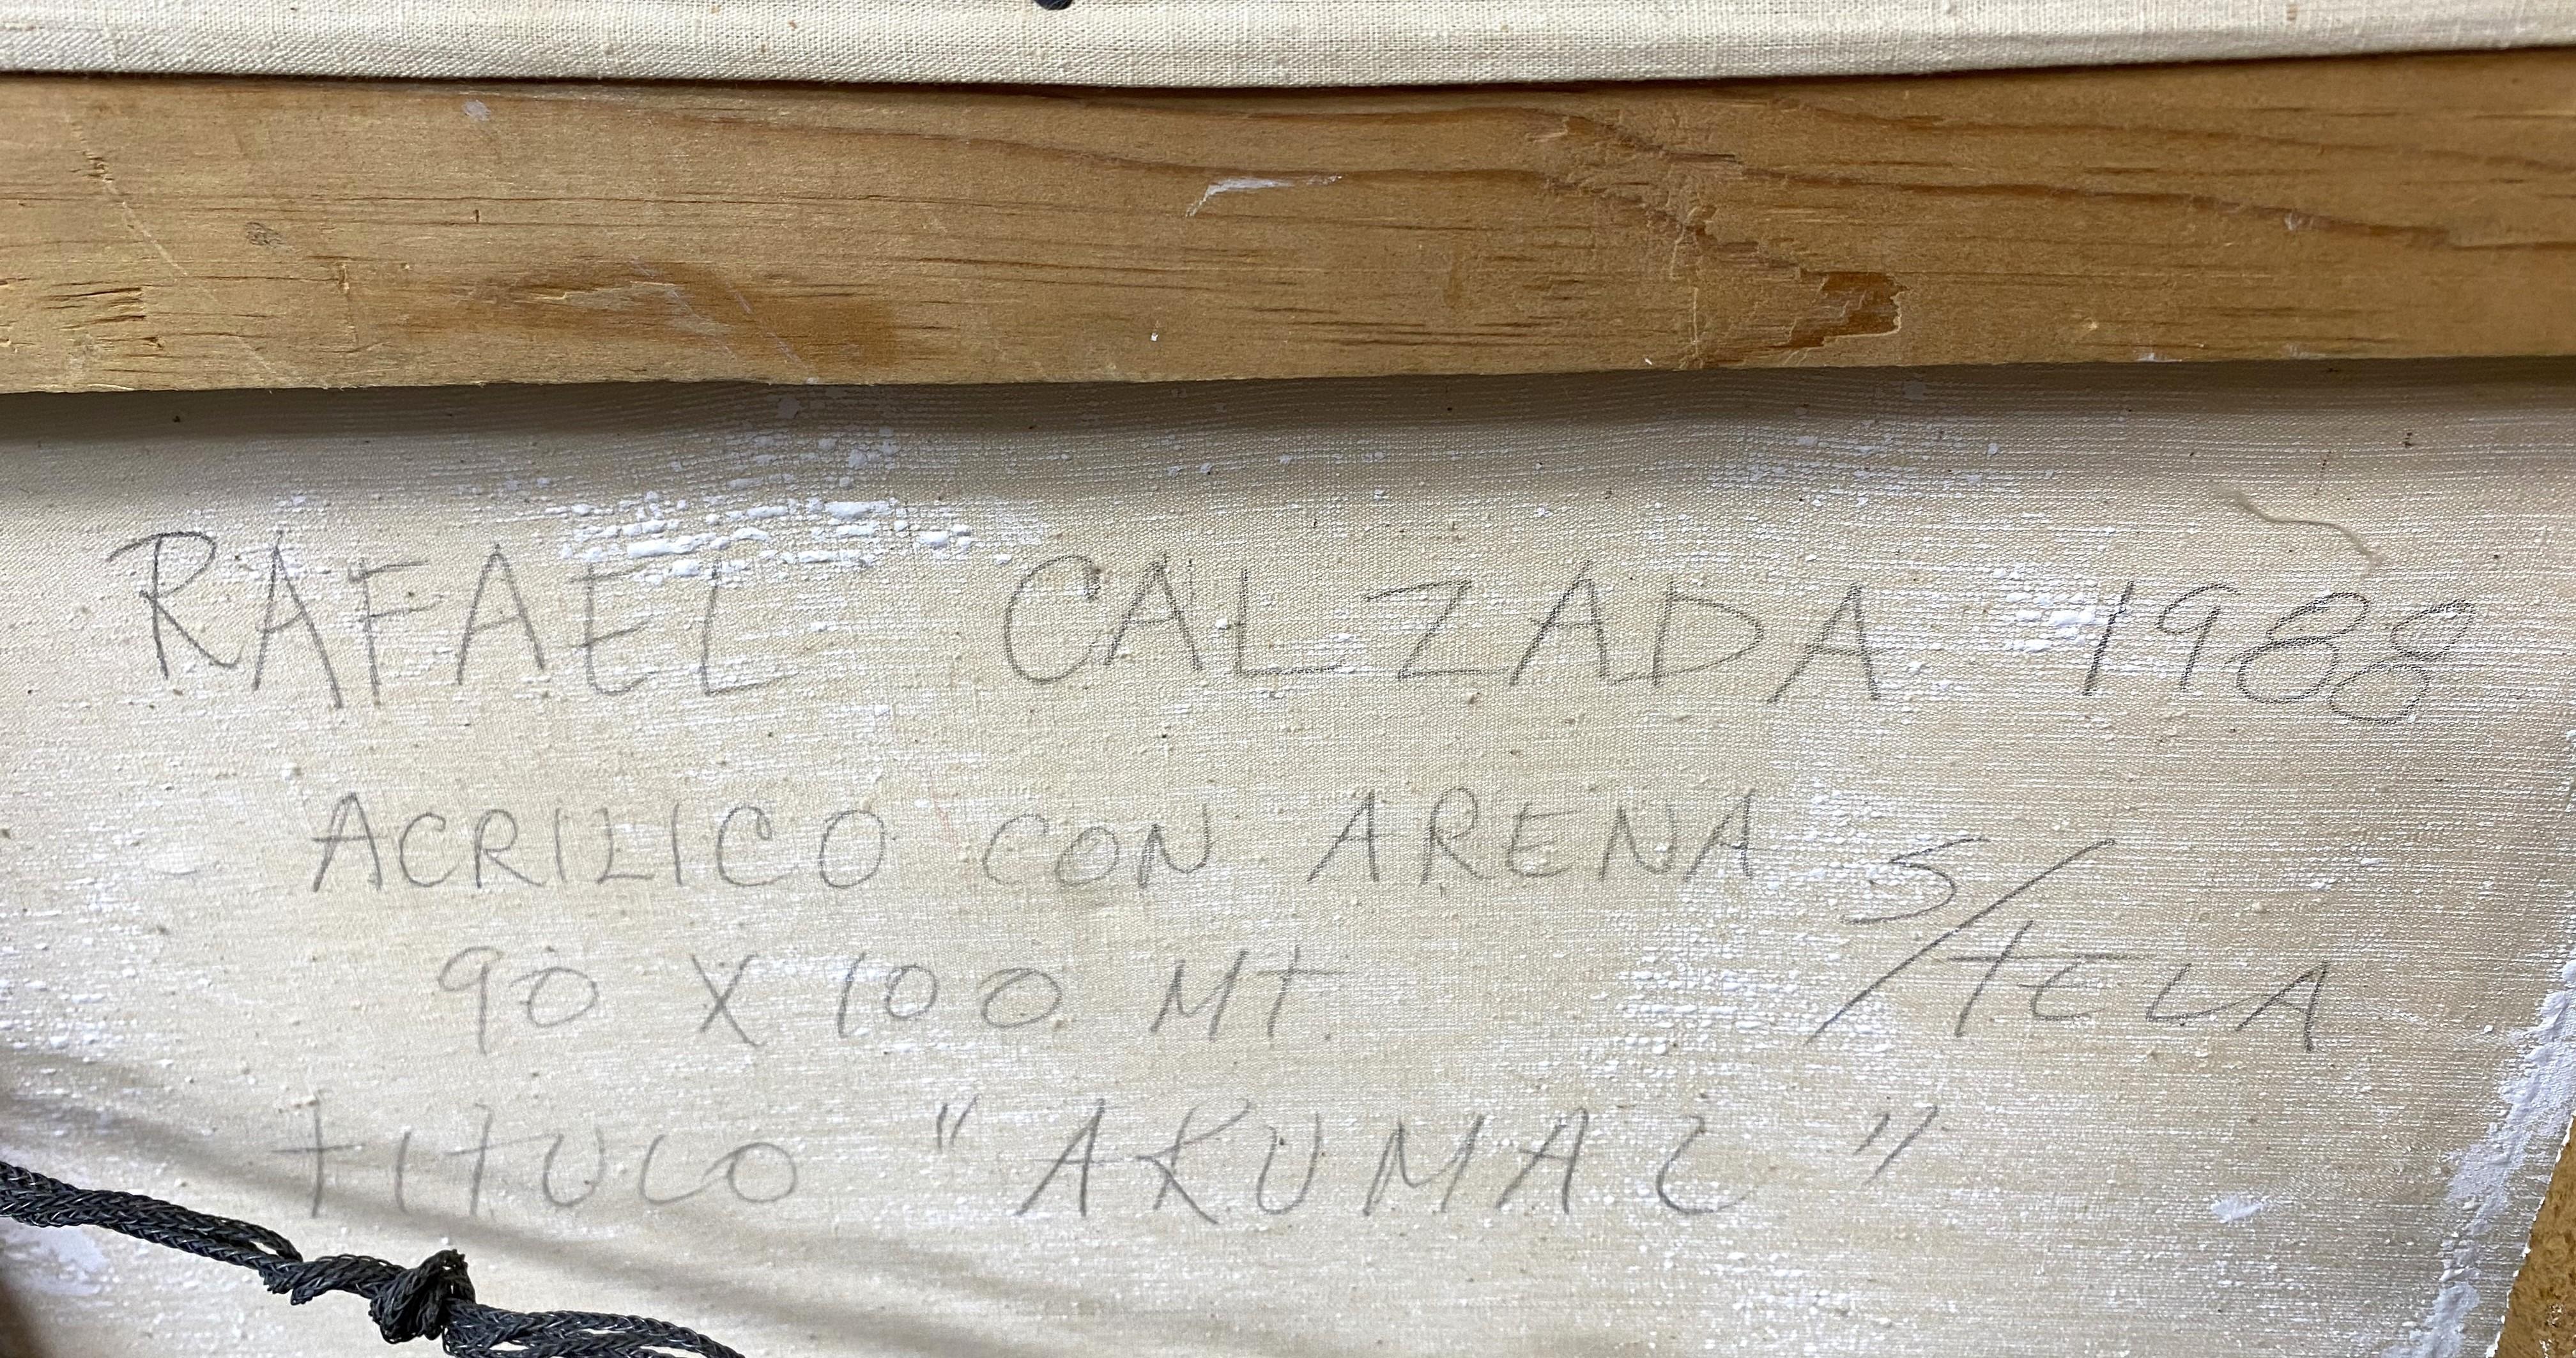 RAFAEL CALZADA 1988
ACRILICO CON ARENA S/TELA
90 X 100 Mt.
tITULO "AKUMAL"